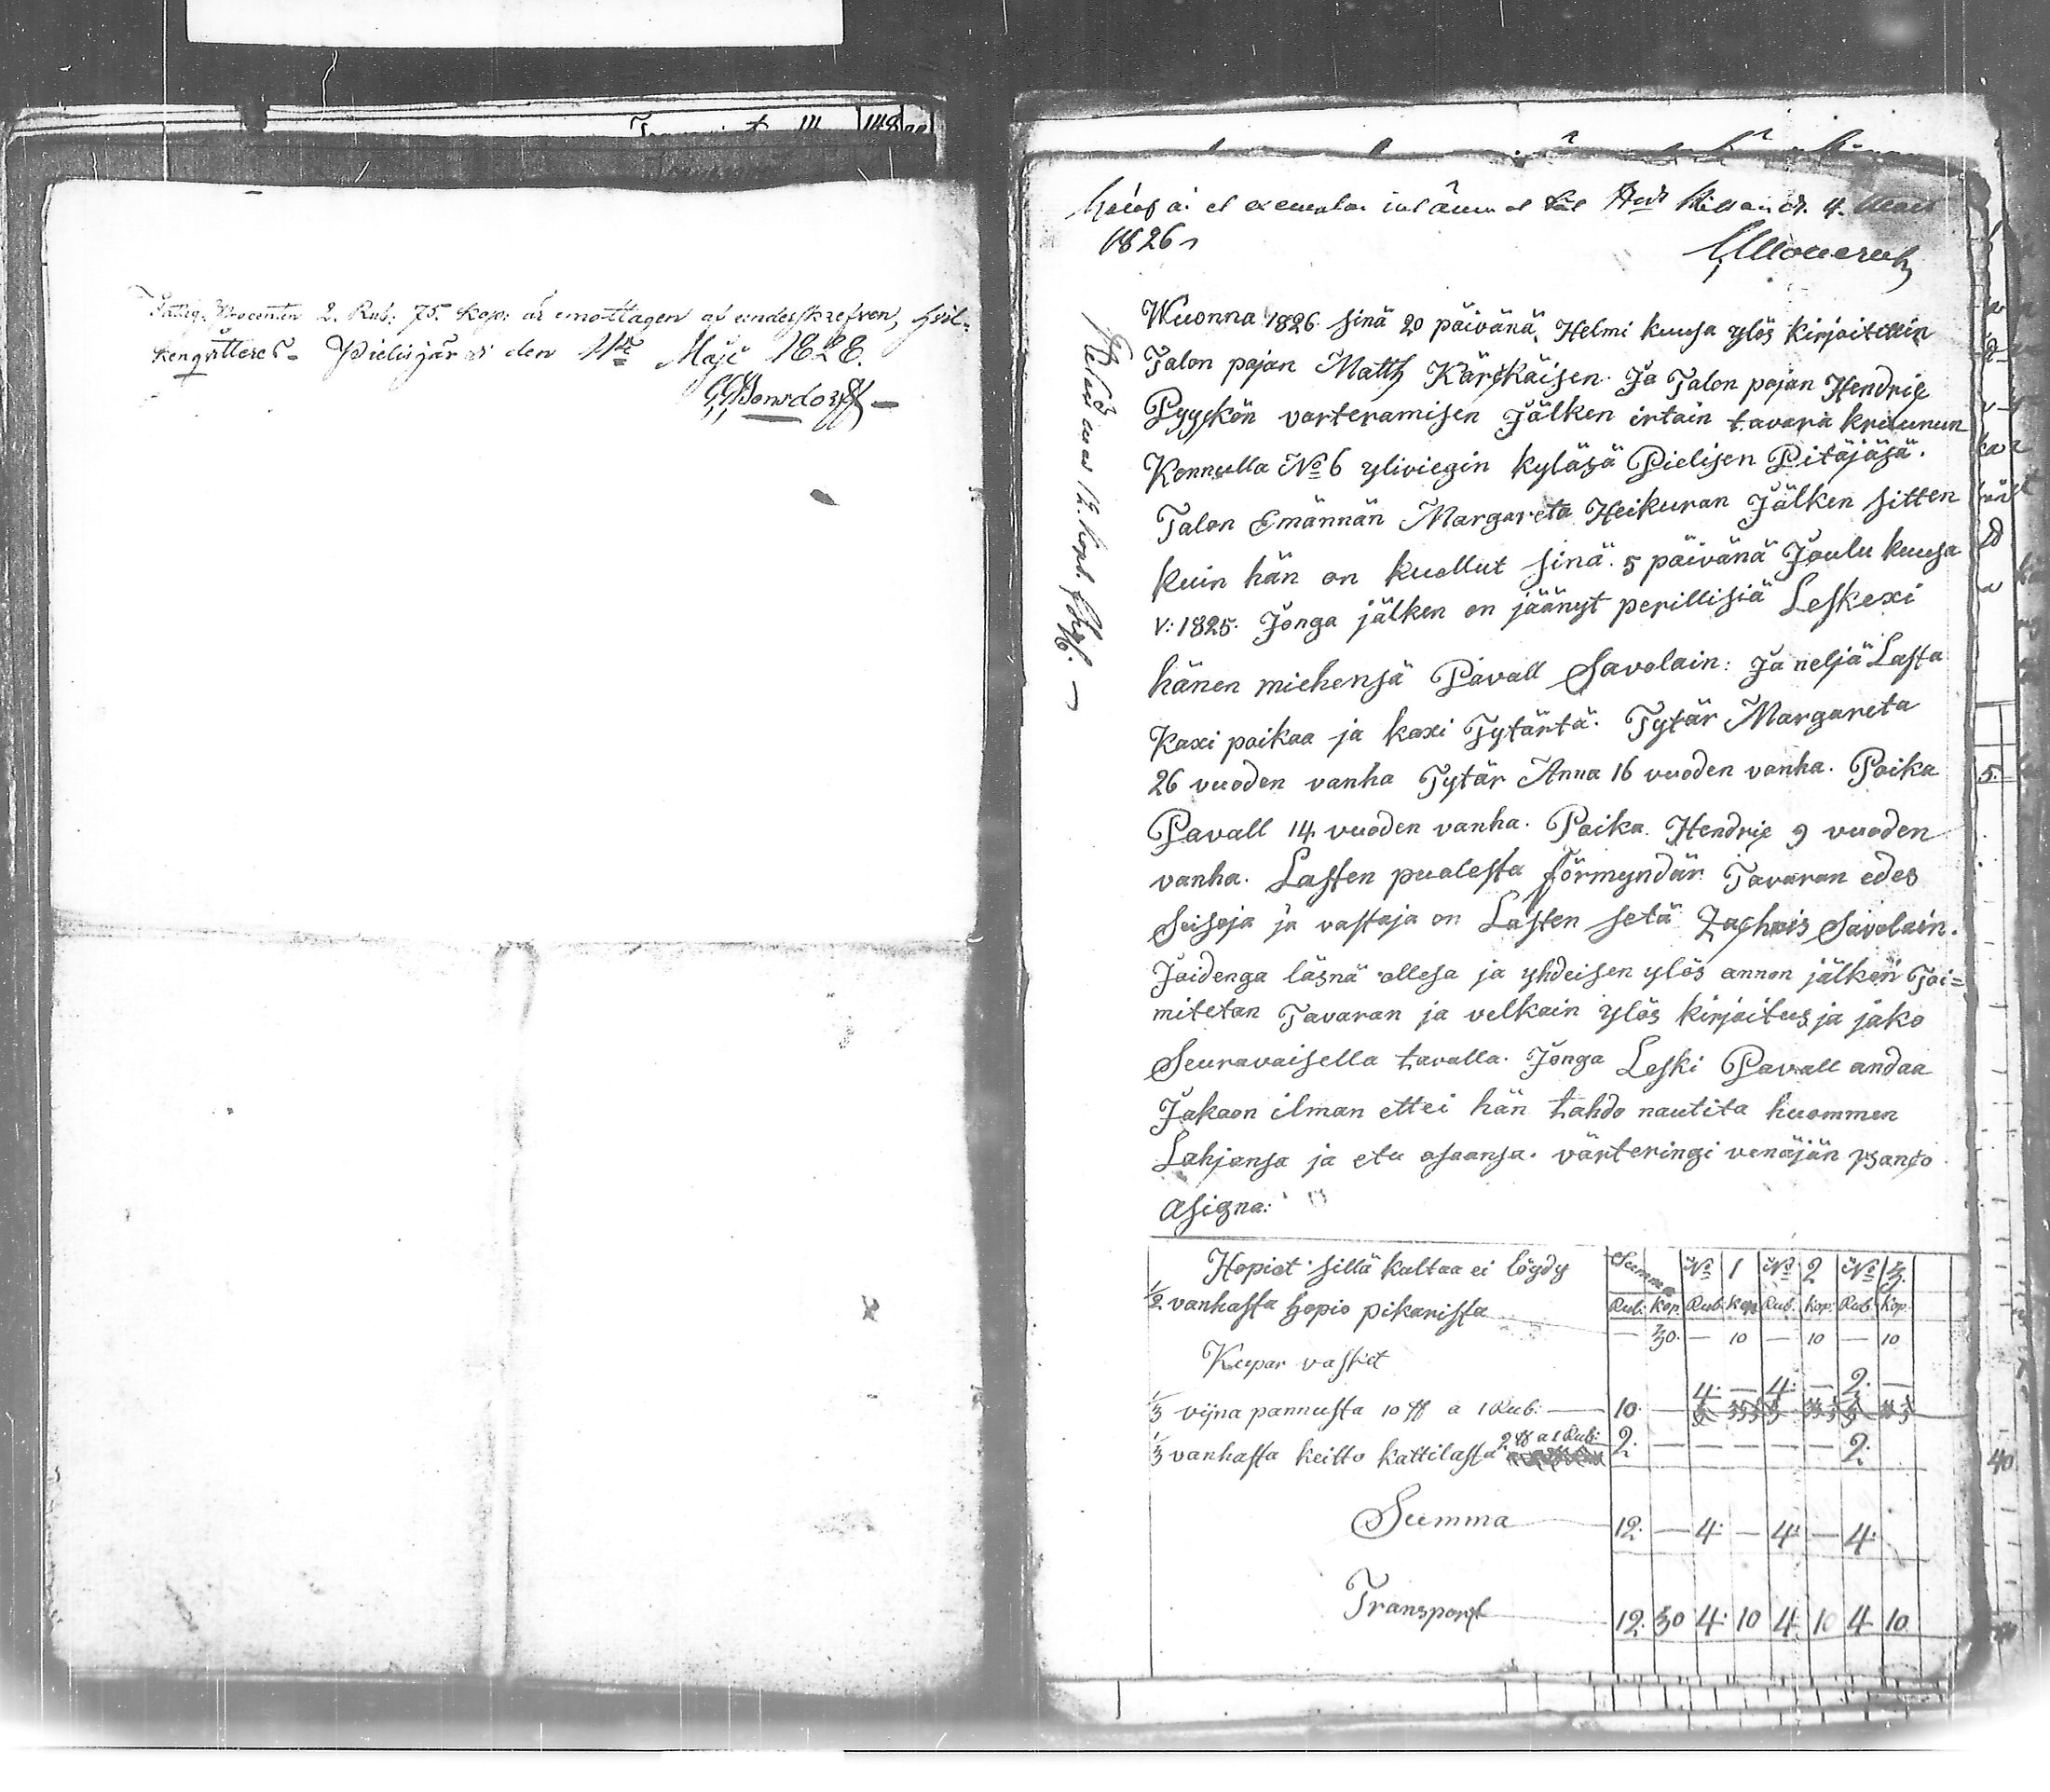 Fattig Procenten 2. Rub: 75. Kop: är emottagen af undeskrefven, hvil-
kenqvitteras - Pielisjärvi den 11te Maji 1826.
GGBonsdorff
1826
Wuonna 1826 sinä 20 päivänä, Helmi kuusa ylös kirjoitettin
Talon pojan Matth Kärckäisen. Ja Talon pojan Hendric
Pyyckön varteramisen Jälken irtain tavara kruunun
Kennulla No 6 yliviegin kyläsä Pielisen Pitäjäsä.
Talon Emännän Margareta Heikuran Jälken sitten
kuin hän on kuollut sinä. 5 päivänä Joulu kuusa
v: 1825. Jonga jälken on jäänyt perillisiä Leskexi
hänen miehensä Pavall Savolain: Ja neljä Lasta
Kaxi poikaa ja kaxi Tytärtä. Tytär Margareta
26 vuoden vanha Tytär Anna 16 vuoden vanha. Poika
Pavall 14 vuoden vanha. Poika Hendric 9 vuoden
vanha. Lasten puolesta förmyndär Tavaran edes
Seisoja ja vastaja on Lasten setä Zachris Savolain.
Joidenga läsnä ollesa ja yhdeisen ylös annon jälken Toi=
mitetan Tavaran ja velkain ylös kirjoitus ja jako
Seuravaisella tavalla. Jonga Leski Pavall andaa
Jakaon ilman ettei hän tahdo nautita huommen
Lahjansa ja etu osaansa. värteringi venäjän panco
Asigna:
Hopiot sillä kultaa ei löydy Summa No 1 No 2 No 3.
1/2 vanhasta hopio pikarista Rub: Kop. Rub: Kop Rub. Kop: Rub: Kop.
— 30. — 10 — 10 — 10
Kupar vasket
4. — 4. — 2. —
1/3 vijna pannusta 10 ℔ a 1 Rub: — 10. —
1/3 vanhasta keitto kattilasta 2 ℔ a 1 Rub: 2. — — — — — 2.
Summa 12. — 4. — 4. — 4.
Transport 12. 30 4. 10 4. 10 4 10